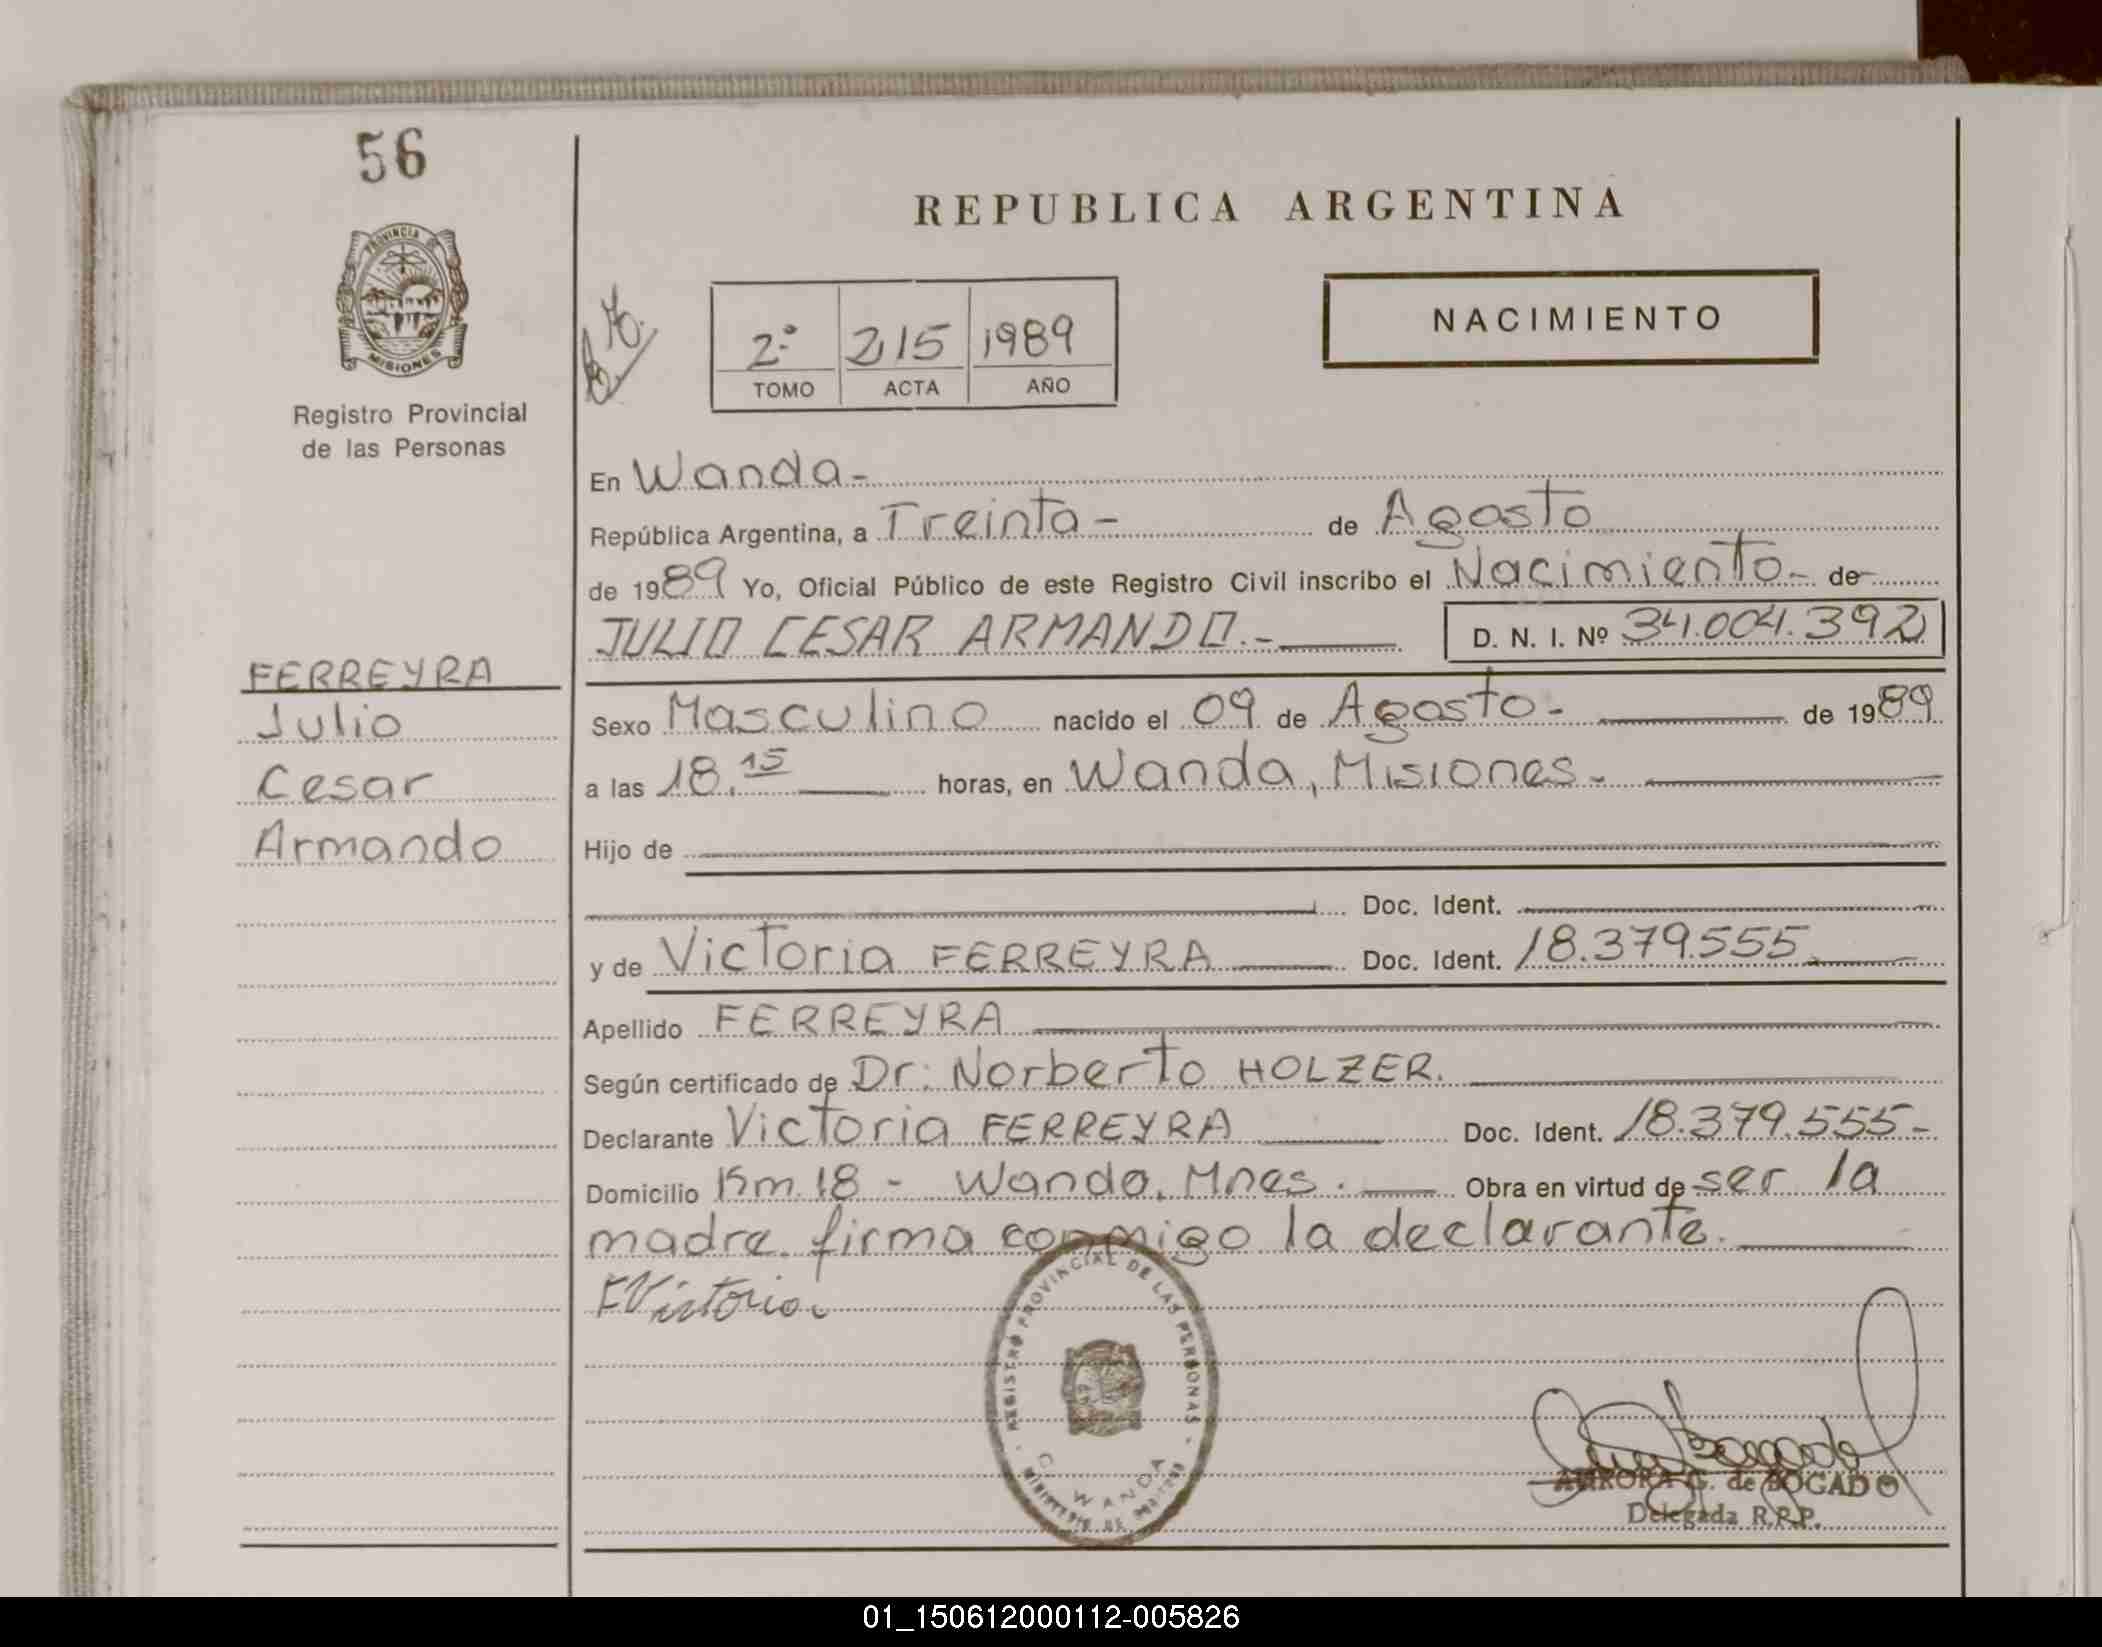 56
REPUBLICA ARGENTINA
PROVINCIA DE
MISIONES
Registro Provincial
de las Personas
2º 215 1989
TOMO ACTA AÑO
NACIMIENTO
En Wanda-
República Argentina, a Treinta- de Agosto
de 1989 Yo, Oficial Público de este Registro Civil inscribo el Nacimiento- de
JULIO CESAR ARMANDO.- D. N. I. Nº 34.004.392
FERREYRA
Julio
Cesar
Armando
Sexo Masculino nacido el 09 de Agosto- de 1989
a las 18.15 horas, en Wanda, Misiones-
Hijo de
Doc. Ident.
y de Victoria FERREYRA Doc. Ident. 18.379.555
Apellido FERREYRA
Según certificado de Dr: Norberto HOLZER.
Declarante Victoria FERREYRA Doc. Ident. 18.379.555-
Domicilio Km 18 - Wanda, Mnes. Obra en virtud de ser la
madre. firma conmigo la declarante.
F Victoria
REGISTRO PROVINCIAL DE LAS PERSONAS
WANDA
AURORA G. de BOGADO
Delegada R.P.P.
01_150612000112-005826